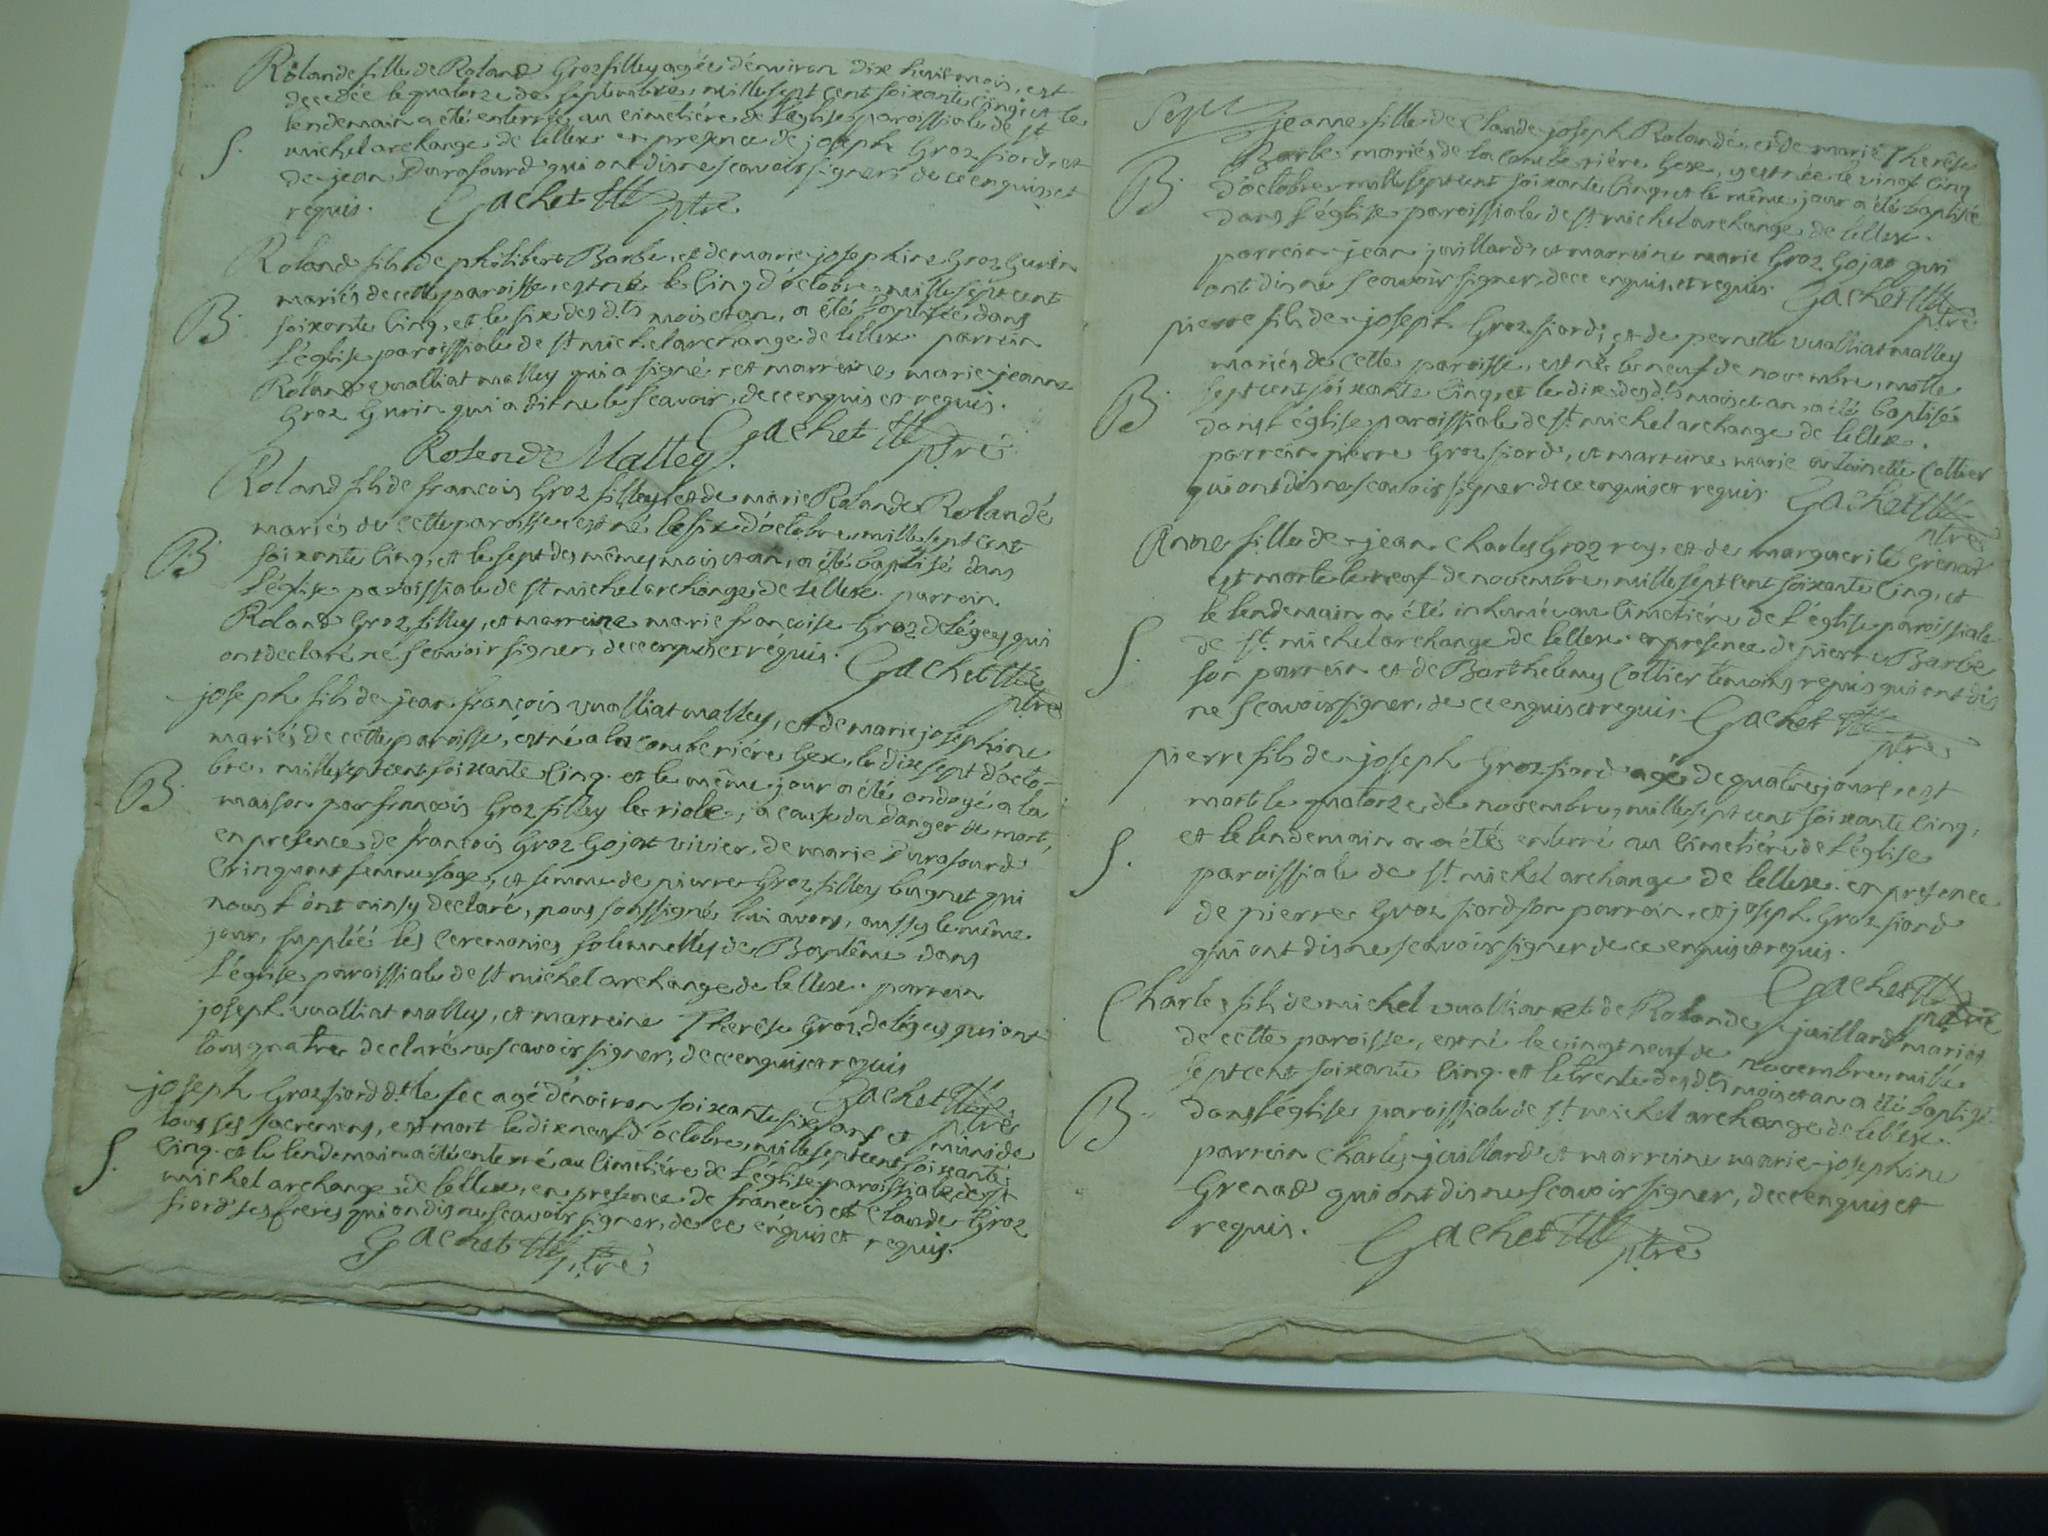 Rolande fille de Roland Groz filley agée d'environ dix huit mois, est
decedée le quatorze de septembre, mille sept cent soixante cinq, et le
lendemain a été enterrée au cimetière de l'église paroissiale de st
michel archange de lellex en presence de joseph Groz fiord, et
S.
de jean Durafourd qui ont dis ne scavoir signer de ce enquis et
requis. Gachet ptre
Roland fils de philibert Barbe, et de marie josephine Groz Gurin
mariés de cette paroisse, est né le cinq d'octobre, mille sept cent
B.
soixante cinq, et le six des d.ts mois et an, a été baptisée dans
l'église paroissiale de st michel archange de lellex. parrein
Roland vualliat malley qui a signé, et marreine, marie jeanne
Groz Gurin qui a dit ne le scavoir, de ce enquis et requis.
Gachet ptre
Rolend Malley
Roland fils de francois Groz filley, et de marie Rolande Rolandé
mariés de cette paroisse est né le six d'octobre mille sept cent
B.
soixante cinq, et le sept des mêmes mois et an, a été baptisé dans
l'église paroissiale de st michel archange de lellex. parrein
Roland Groz filley, et marreine marie françoise Groz delégey qui
ont declaré né scavoir signer, de ce enquis et réquis. Gachet
ptre
joseph fils de jean françois vualliat malley, et de marie josephine
mariés de cette paroisse, est né a la combe riére Gex, le dix sept d'octo-
bre, mille sept cent soixante cinq. et le même jour a été ondoyé a la
B.
maison par francois Groz filley le riole, a cause du danger de mort,
en presence de francois Groz Gojat vivier, de marie Durafourd
femme sage, et femme de pierre Groz filley bugnet qui
nous l'ont ainsy declaré, nous soussigné lui avons, aussy le même
jour, supplée les ceremonies solemnelles de Baptême dans
l'église paroissiale de st michel archange de lellex. parrein
joseph vualliat malley, et marreine Therêse Groz delégey qui ont
tous quatre declaré ne scavoir signer, de ce enquis et requis
Gachet ptre
joseph Groz fiord d.t le sec agé d'environ soixante six ans et muni de
tous ses sacremens, est mort le dix neuf d'octobre, mille sept cent soixante
S.
cinq. et le lendemain a été enterré au cimetiére de l'église paroissiale de st
michel archange de lellex, en presence de francois et Claude Groz
fiord ses freres qui on dis ne scavoir signer, de ce enquis et requis.
Gachet ptre
Sept
jeanne fille de Claude joseph Rolandé, et de marie Therêse
Barbe mariés de la combe riére Gex, y est née le vingt cinq
B.
d'octobre mille sept cent soixante cinq, et le même jour a été baptisée
dans l'église paroissiale de st michel archange de lellex.
parrein jean juillard, et marreine marie Groz Gojat qui
ont dis ne scavoir signer, de ce enquis, et requis. Gachet
ptre
pierre fils de joseph Groz fiord, et de pernette vualliat malley
mariés de cette paroisse, est né le neuf de novembre, mille
sept cent soixante cinq, et le dix des d.ts mois et an, a été baptisé
B.
dans l'église paroissiale de st michel archange de lellex.
parrein pierre Groz fiord, et marreine marie antoinette Cottier
qui ont dis ne scavoir signer de ce enquis et requis. Gachet
ptre
Anne fille de jean Charles Groz rey, et de marguerite Grenard
est morte le neuf de novembre, mille sept cent soixante cinq, et
le lendemain a été inhumée au cimetiére de l'église paroissiale
S.
de st michel archange de lellex. en presence de pierre Barbe
son parrein et de Barthelemy Cottier temoins requis qui ont dis
ne scavoir signer, de ce enquis et requis. Gachet
ptre
pierre fils de joseph Groz fiord agé de quatre jours, est
mort le quatorze de novembre, mille sept cent soixante cinq,
et le lendemain a été enterré au cimetiére de l'église
S.
paroissiale de st michel archange de lellex. en presence
de pierre Groz fiord son parrain, et joseph Groz fiord
qui ont dis ne scavoir signer de ce enquis et requis.
Gachet ptre
Charles fils de michel vualliat et de Rolande juillard mariés
de cette paroisse, est né le vingt neuf de novembre, mille
sept cent soixante cinq. et le trente des d.ts mois et an a été baptisé
B.
dans l'église paroissiale de st michel archange de lellex.
parrein Charles juillard et marreine marie josephine
Grenard qui ont dis ne scavoir signer, de ce enquis et
requis. Gachet ptre